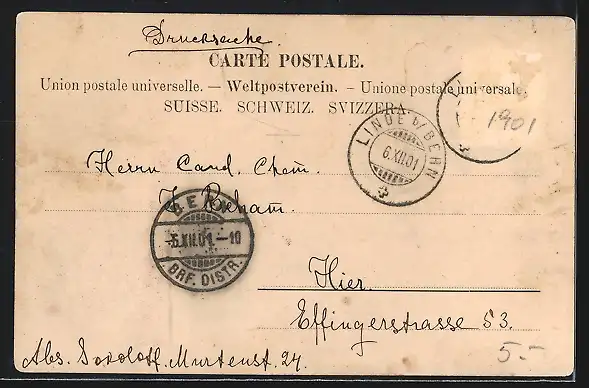 Drucksache.
CARTE POSTALE.
Union postale universelle. — Weltpostverein. — Unione postale universale.
SUISSE. SCHWEIZ. SVIZZERA.
LINDE b/BERN
6.XII.01
1901
Herrn Cand. Chem.
J. Reham.
BERN
-6.XII.01.-10
BRF. DISTR.
Hier.
Effingerstrasse 53.
5.-
Abs. Sokoloff. Murtenst. 24.